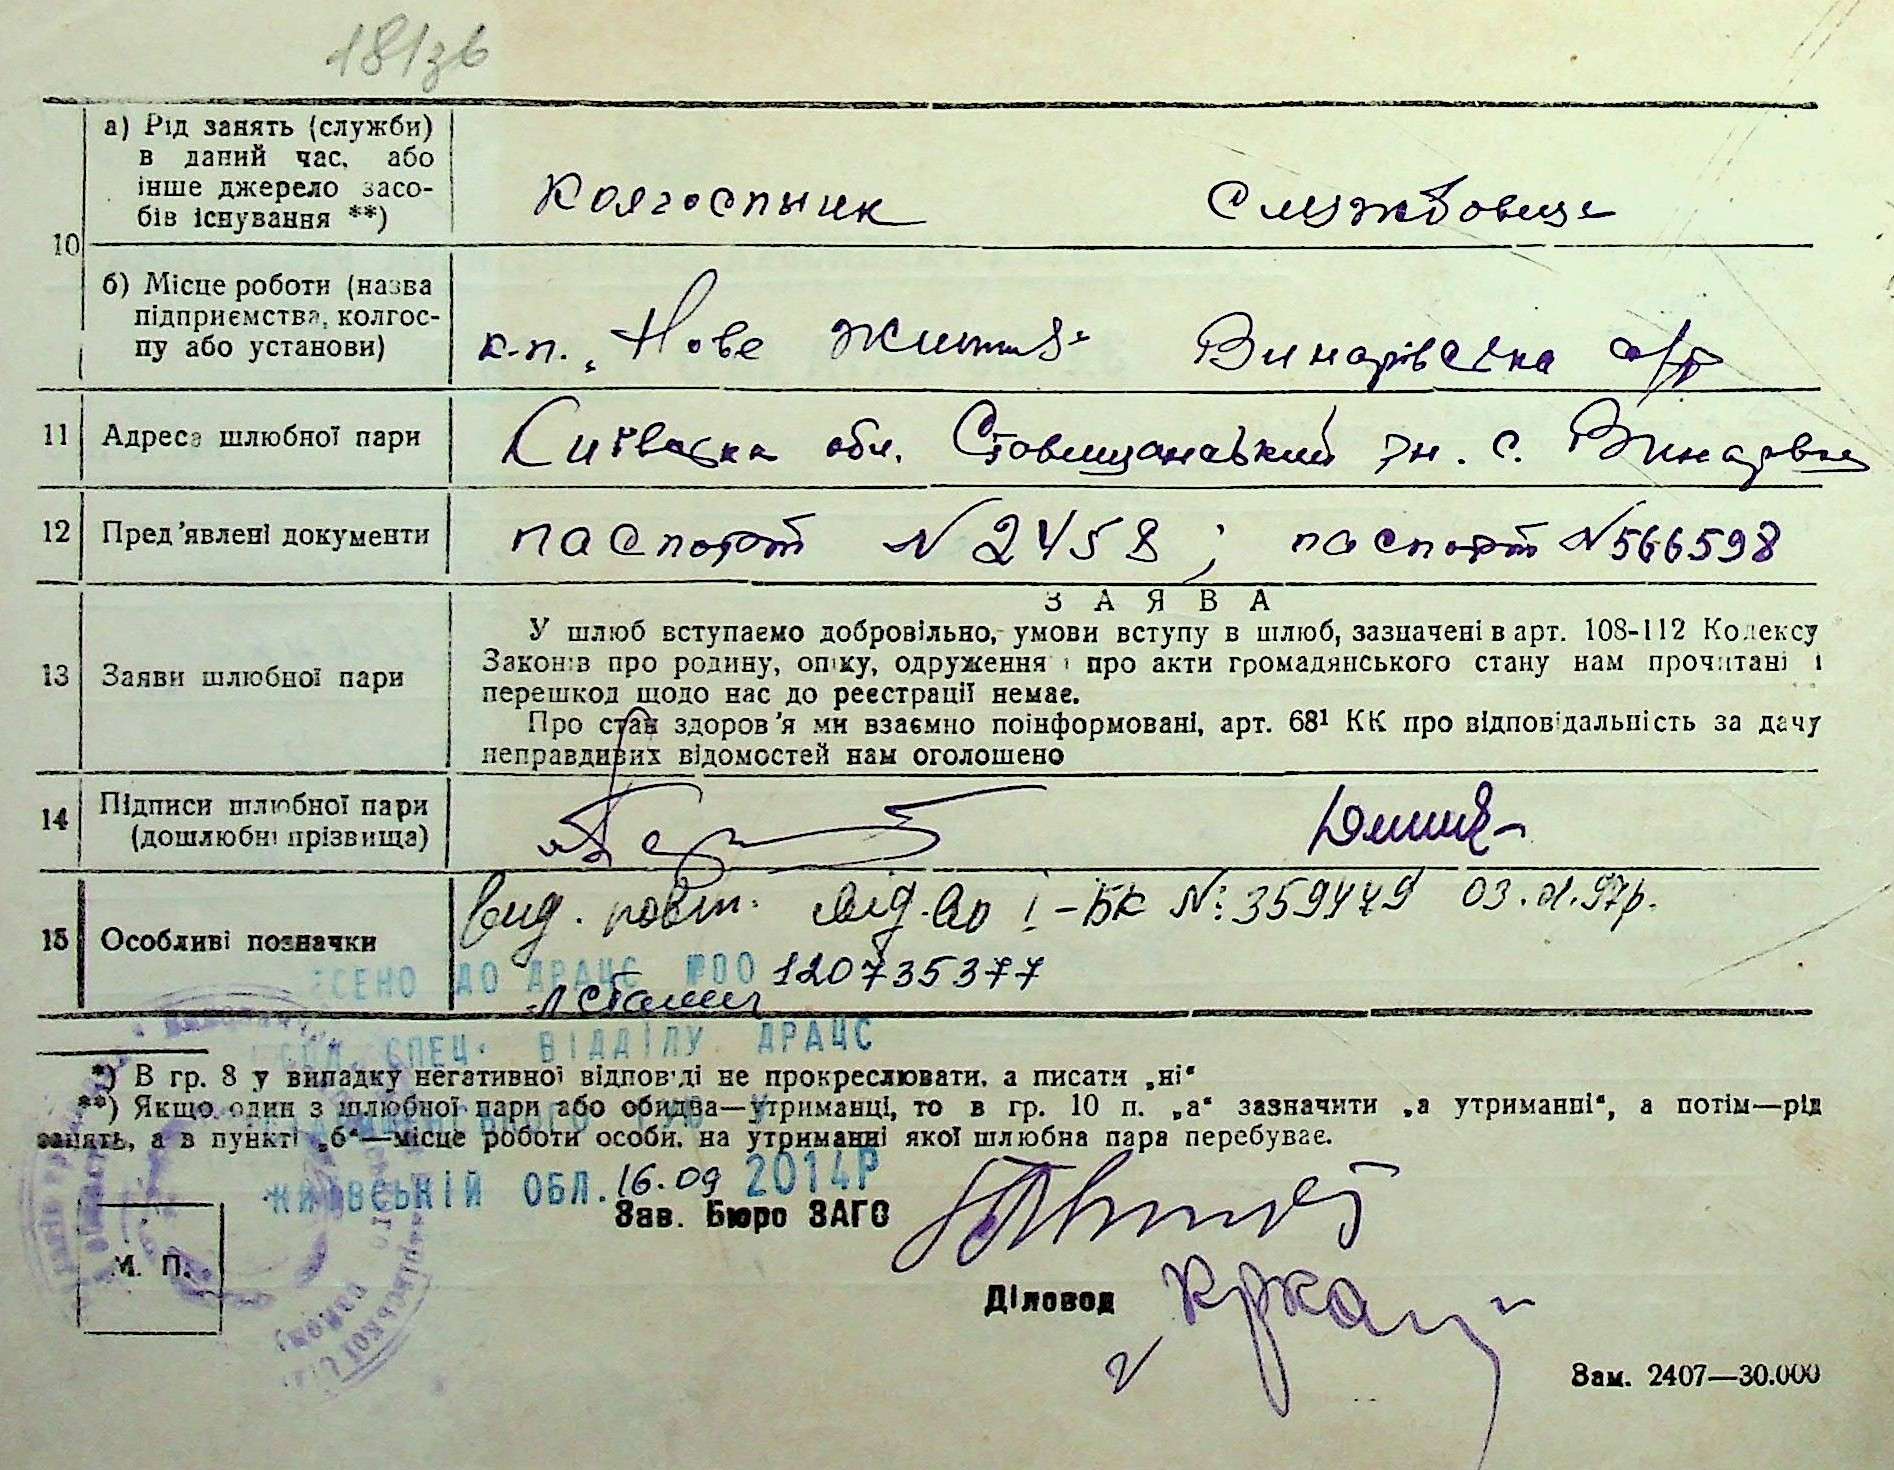 181зв
10
а) Рід занять (служби)
в даний час, або
інше джерело засо-
бів існування **)
Колгоспник Службовиця
б) Місце роботи (назва
підприємства, колгос-
пу або установи)
к-п. „Нове життя" Винарівська с/р
11 Адреса шлюбної пари Київська обл. Ставищанський рн. с. Винарівка
12 Пред'явлені документи паспорт № 2458; паспорт № 566598
ЗАЯВА
13 Заяви шлюбної пари
У шлюб вступаємо добровільно, умови вступу в шлюб, зазначені в арт. 108-112 Кодексу
Законів про родину, опіку, одруження і про акти громадянського стану нам прочитані і
перешкод щодо нас до реєстрації немає.
Про стан здоров'я ми взаємно поінформовані, арт. 68¹ КК про відповідальність за дачу
неправдивих відомостей нам оголошено
14 Підписи шлюбної пари
(дошлюбні прізвища)
15 Особливі позначки
вид. повт. свід-во І-БК №: 359449 03.01.97р.
ЕСЕНО ДО ДРАЦС №00 120735377
СПЕЦ. ВІДДІЛУ ДРАЦС
*) В гр. 8 у випадку негативної відповіді не прокреслювати, а писати „ні"
**) Якщо один з шлюбної пари або обидва—утриманці, то в гр. 10 п. „а" зазначити „а утриманні", а потім—рід
занять, а в пункті „б"—місце роботи особи, на утриманні якої шлюбна пара перебуває.
КИЇВСЬКІЙ ОБЛ. 16.09 2014Р
Зав. Бюро ЗАГС
М. П.
Діловод
Зам. 2407—30.000